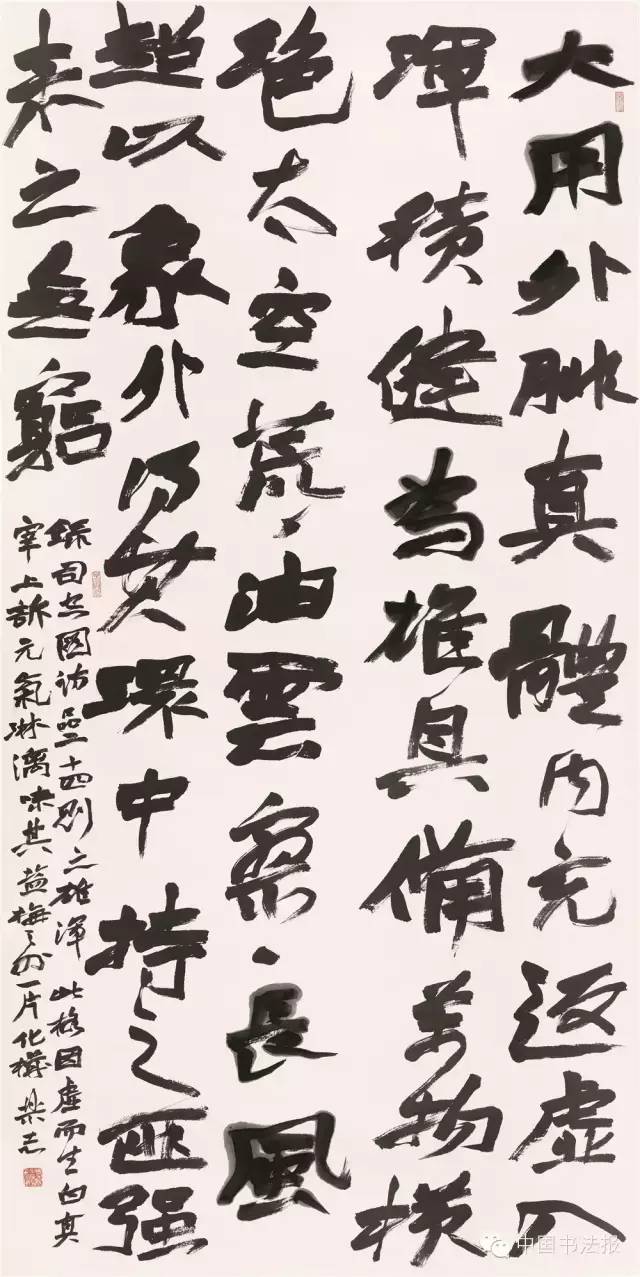 大用外腓真體内充返虚入
渾積健為雄具備萬物横
絶太空荒々油雲寥々長風
超以象外得其環中持之匪强
来之無窮
錄司空圖詩品二十四則之雄渾此格因虚而生白真
宰上訴元氣淋漓味其梅之外一片化機
中国书法报